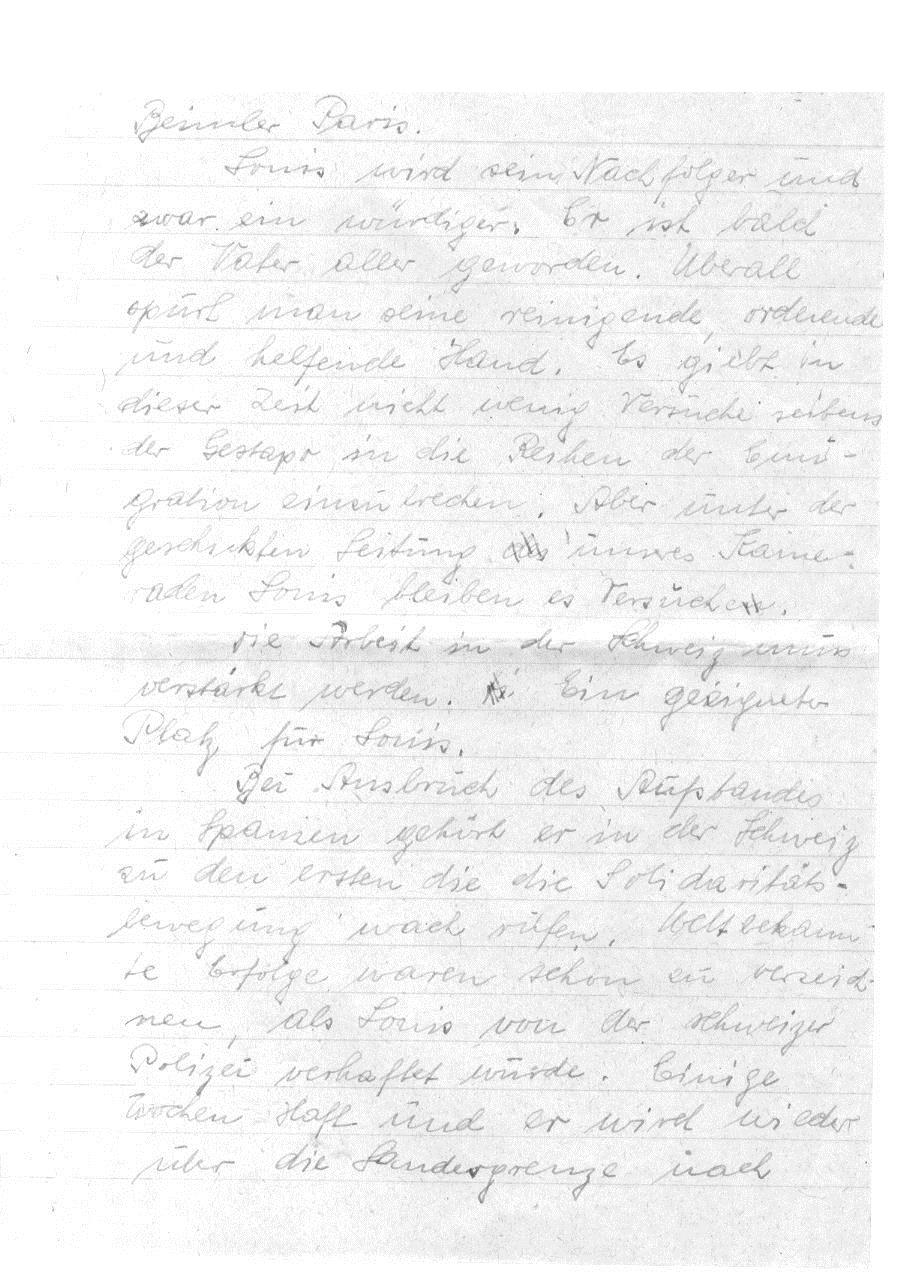 Beimler Paris.
Louis wird sein Nachfolger und
zwar ein würdiger. Er ist bald
der Vater aller geworden. Überall
spürt man seine reinigende, ordnende
und helfende Hand. Es giebt in
dieser Zeit nicht wenig Versuche seitens
der Gestapo in die Reihen der Emi-
gration einzubrechen. Aber unter der
geschickten Leitung unseres Kame-
raden Louis bleiben es Versuche.
Die Arbeit in der Schweiz muss
verstärkt werden. Ein geeigneter
Platz für Louis.
Bei Ausbruch des Aufstandes
in Spanien gehört er in der Schweiz
zu den ersten die die Solidaritäts-
bewegung wach rufen. Weltbekann-
te Erfolge waren schon zu verzeich-
nen, als Louis von der schweizer
Polizei verhaftet wurde. Einige
Wochen Haft und er wird wieder
über die Landesgrenze nach